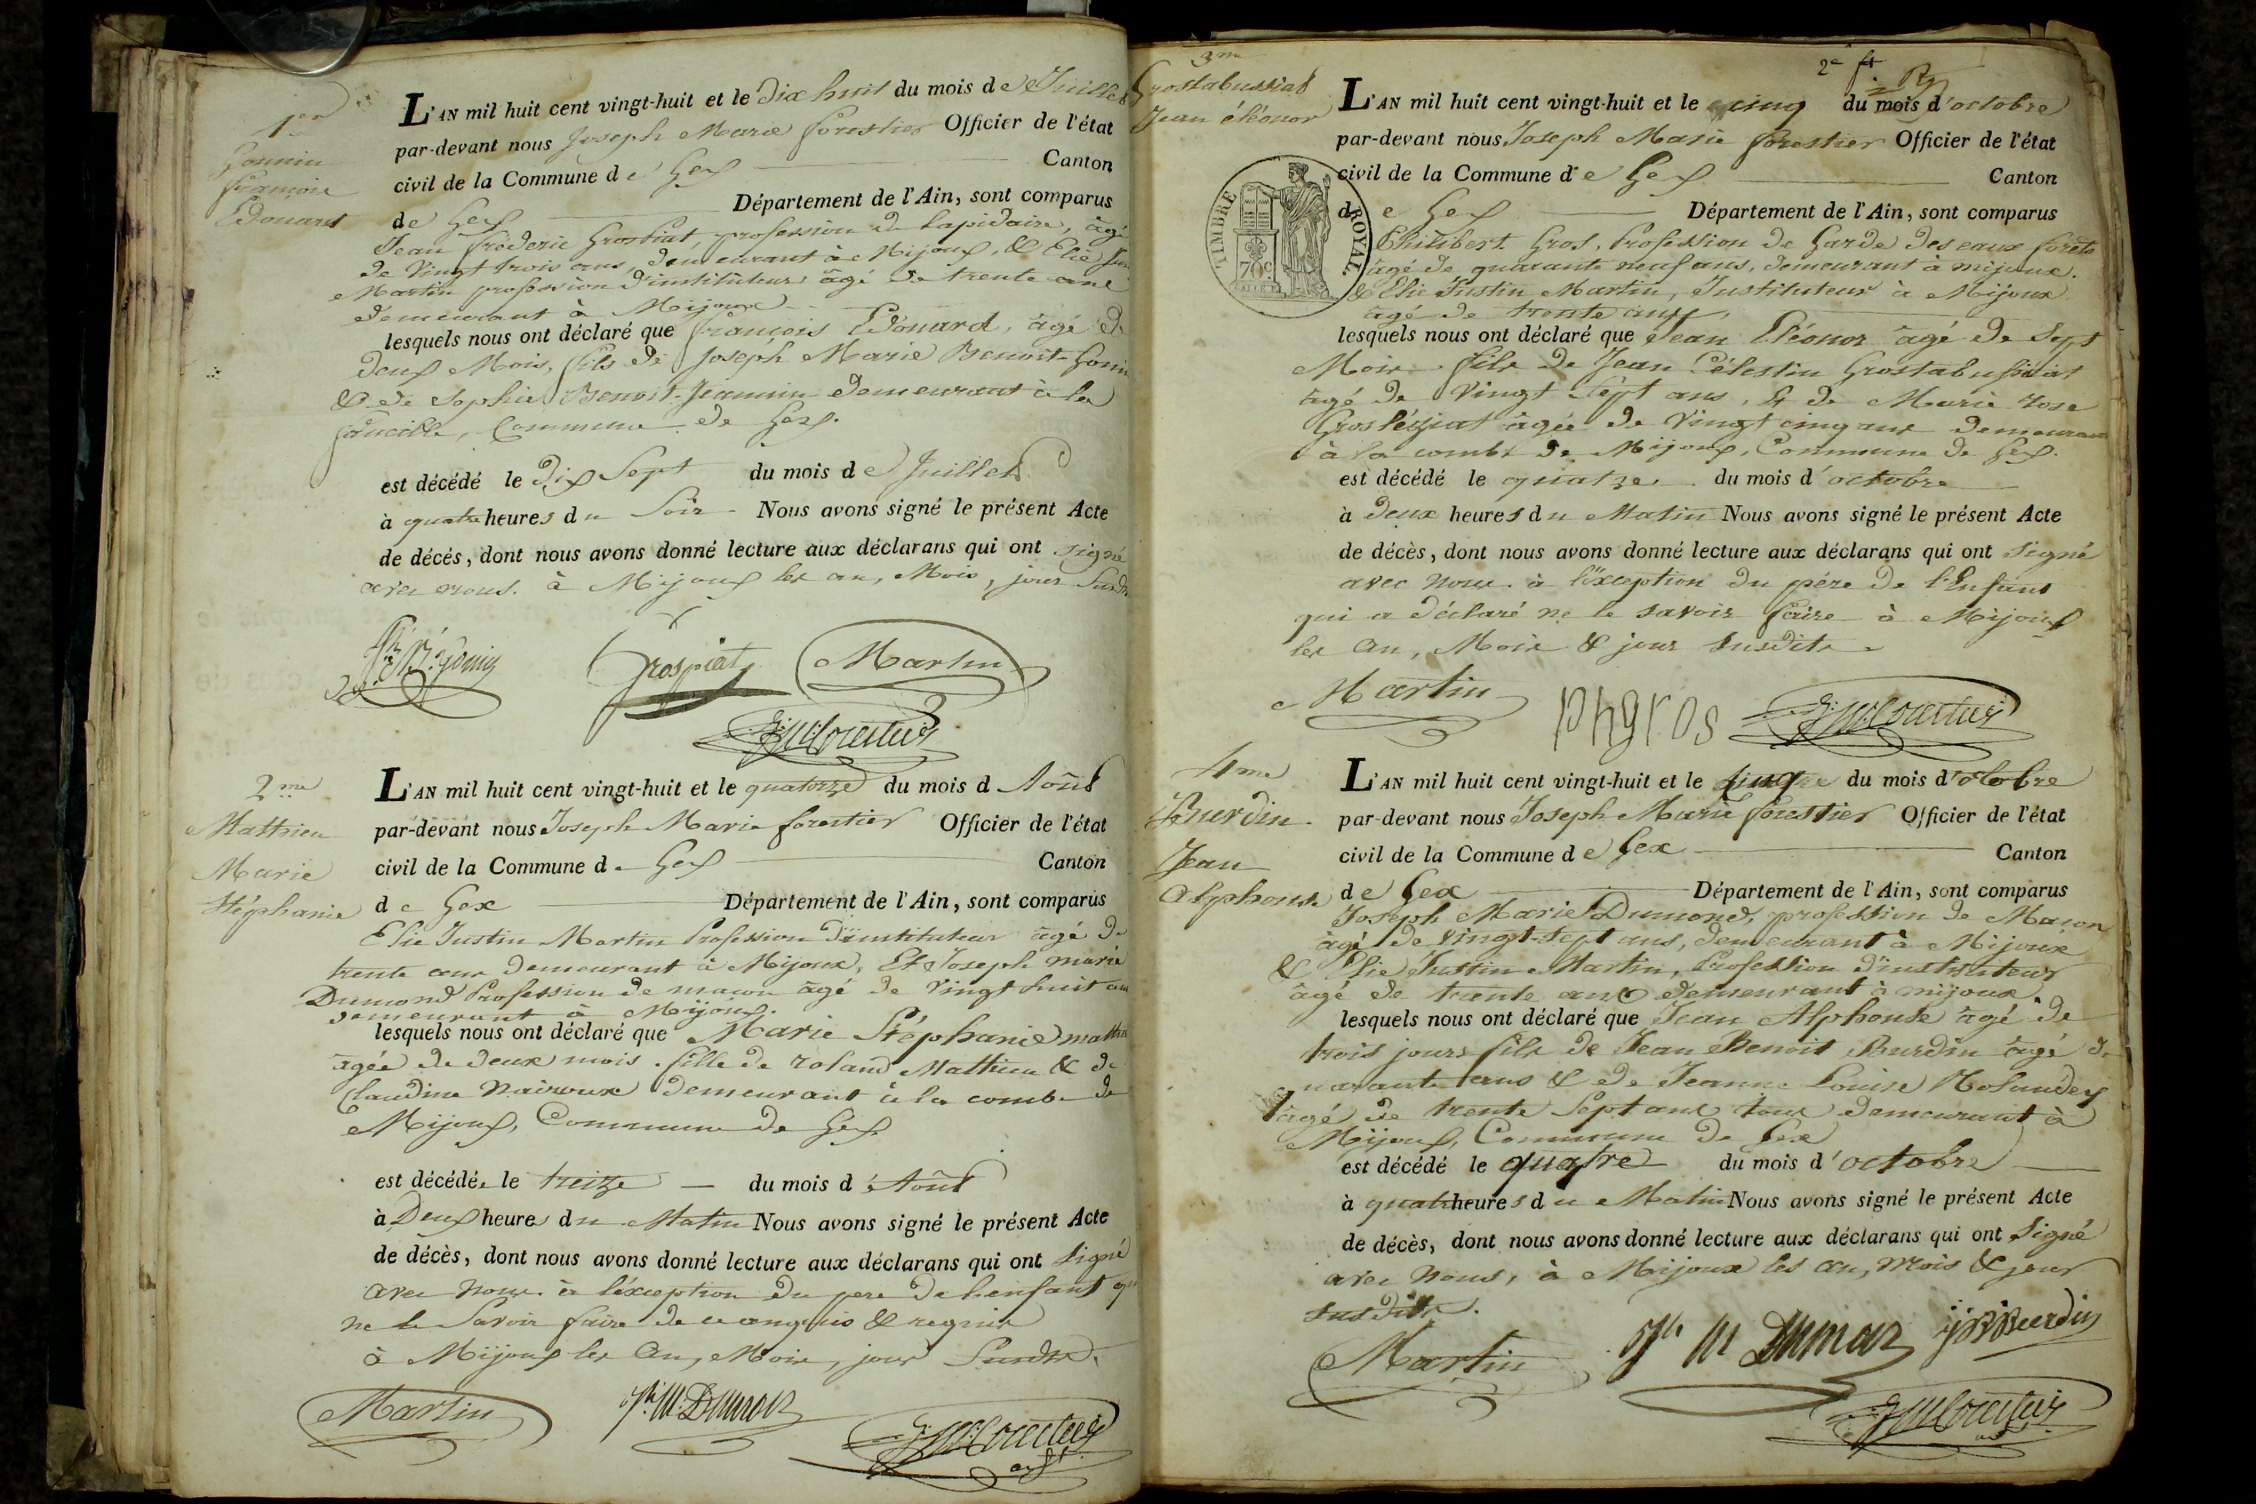 1er
Gonnin
François
Edouard
L'AN mil huit cent vingt-huit et le dix huit du mois de Juillet
par-devant nous Joseph Marie forestier Officier de l'état
civil de la Commune de Gex Canton
de Gex Département de l'Ain, sont comparus
Jean fréderic Grospiat, profession de Lapidaire, âgé
de Vingt trois ans, demeurant à Mijoux, & Elie Jus
Martin profession d'instituteur âgé de trente ans
demeurant à Mijoux
lesquels nous ont déclaré que françois Edouard, âgé de
deux Mois, fils de Joseph Marie Benoit-Gonin
& de Sophie Benoit-Jeannin demeurant à la
faucille, Commune de Gex.
est décédé le Dix Sept du mois de Juillet
à quatre heures du Soir Nous avons signé le présent Acte
de décés, dont nous avons donné lecture aux déclarans qui ont signé
avec nous. à Mijoux les an, Mois, jour Susdit
Grospiat Martin
2me
Mathieu
Marie
Stéphanie
L'AN mil huit cent vingt-huit et le quatorze du mois d Aoùt
par-devant nous Joseph Marie forestier Officier de l'état
civil de la Commune de Gex Canton
de Gex Département de l'Ain, sont comparus
Elie Justin Martin Profession d'instituteur âgé de
trente ans demeurant à Mijoux, Et Joseph marie
Dumond Profession de maçon âgé de Vingt huit ans
demeurant à Mijoux.
lesquels nous ont déclaré que Marie Stéphanie math
âgée de deux mois. fille de roland Mathieu & de
Claudine demeurant à la combe de
Mijoux, Commune de Gex
est décédée le treize du mois d'Aoùt
à Deux heures du Matin Nous avons signé le présent Acte
de décès, dont nous avons donné lecture aux déclarans qui ont signé
avec nous. à l'éxception du pere de l'enfant qu
ne le Savoir faire de ce &
à Mijoux les An, Mois, jour Susdit.
Martin Jh M. Dumon
3me
Grostabussiat
Jean éléonor
2e ft
L'AN mil huit cent vingt-huit et le cinq du mois d'octobre
par-devant nous Joseph Marie forestier Officier de l'état
civil de la Commune de Gex Canton
de Gex Département de l'Ain, sont comparus
TIMBRE ROYAL
70c
Philibert Gros, Profession de Garde des eaux forêts
âgé de quarante neuf ans, demeurant à mijoux.
& Elie Justin Martin, Instituteur à Mijoux
âgé de trente ans,
lesquels nous ont déclaré que Jean Eléonor âgé de Sept
Mois fils de Jean Célestin Grostabussiat
âgé de Vingt Sept ans, & de Marie rose
âgée de Vingt cinq ans demeurant
à la combe de Mijoux, Commune de Gex.
est décédé le quatre du mois d'octobre
à deux heures du Matin Nous avons signé le présent Acte
de décès, dont nous avons donné lecture aux déclarans qui ont signé
avec nous. à l'éxception du père de l'Enfant
qui a déclaré ne le savoir faire à Mijoux
les An, Mois & jour susdits.
Martin phgros
4me
Burdin
Jean
Alphonse
L'AN mil huit cent vingt-huit et le cinq du mois d'octobre
par-devant nous Joseph Marie forestier Officier de l'état
civil de la Commune de Gex Canton
de Gex Département de l'Ain, sont comparus
Joseph Marie Dumond, profession de Maçon
âgé de vingt-sept ans, demeurant à Mijoux
& Elie Justin Martin, Profession d'instituteur
âgé de trente ans demeurant à mijoux.
lesquels nous ont déclaré que Jean Alphonse âgé de
trois jours fils de Jean Benoit Burdin âgé de
quarante ans & de Jeanne Louise
âgé de trente Sept ans tous demeurant à
Mijoux, Commune de Gex
est décédé le quatre du mois d'octobre
à quatre heures du Matin Nous avons signé le présent Acte
de décès, dont nous avons donné lecture aux déclarans qui ont Signé
avec nous, à Mijoux les an, mois & jour
susdits.
Martin Jh M Dumon jBBurdin